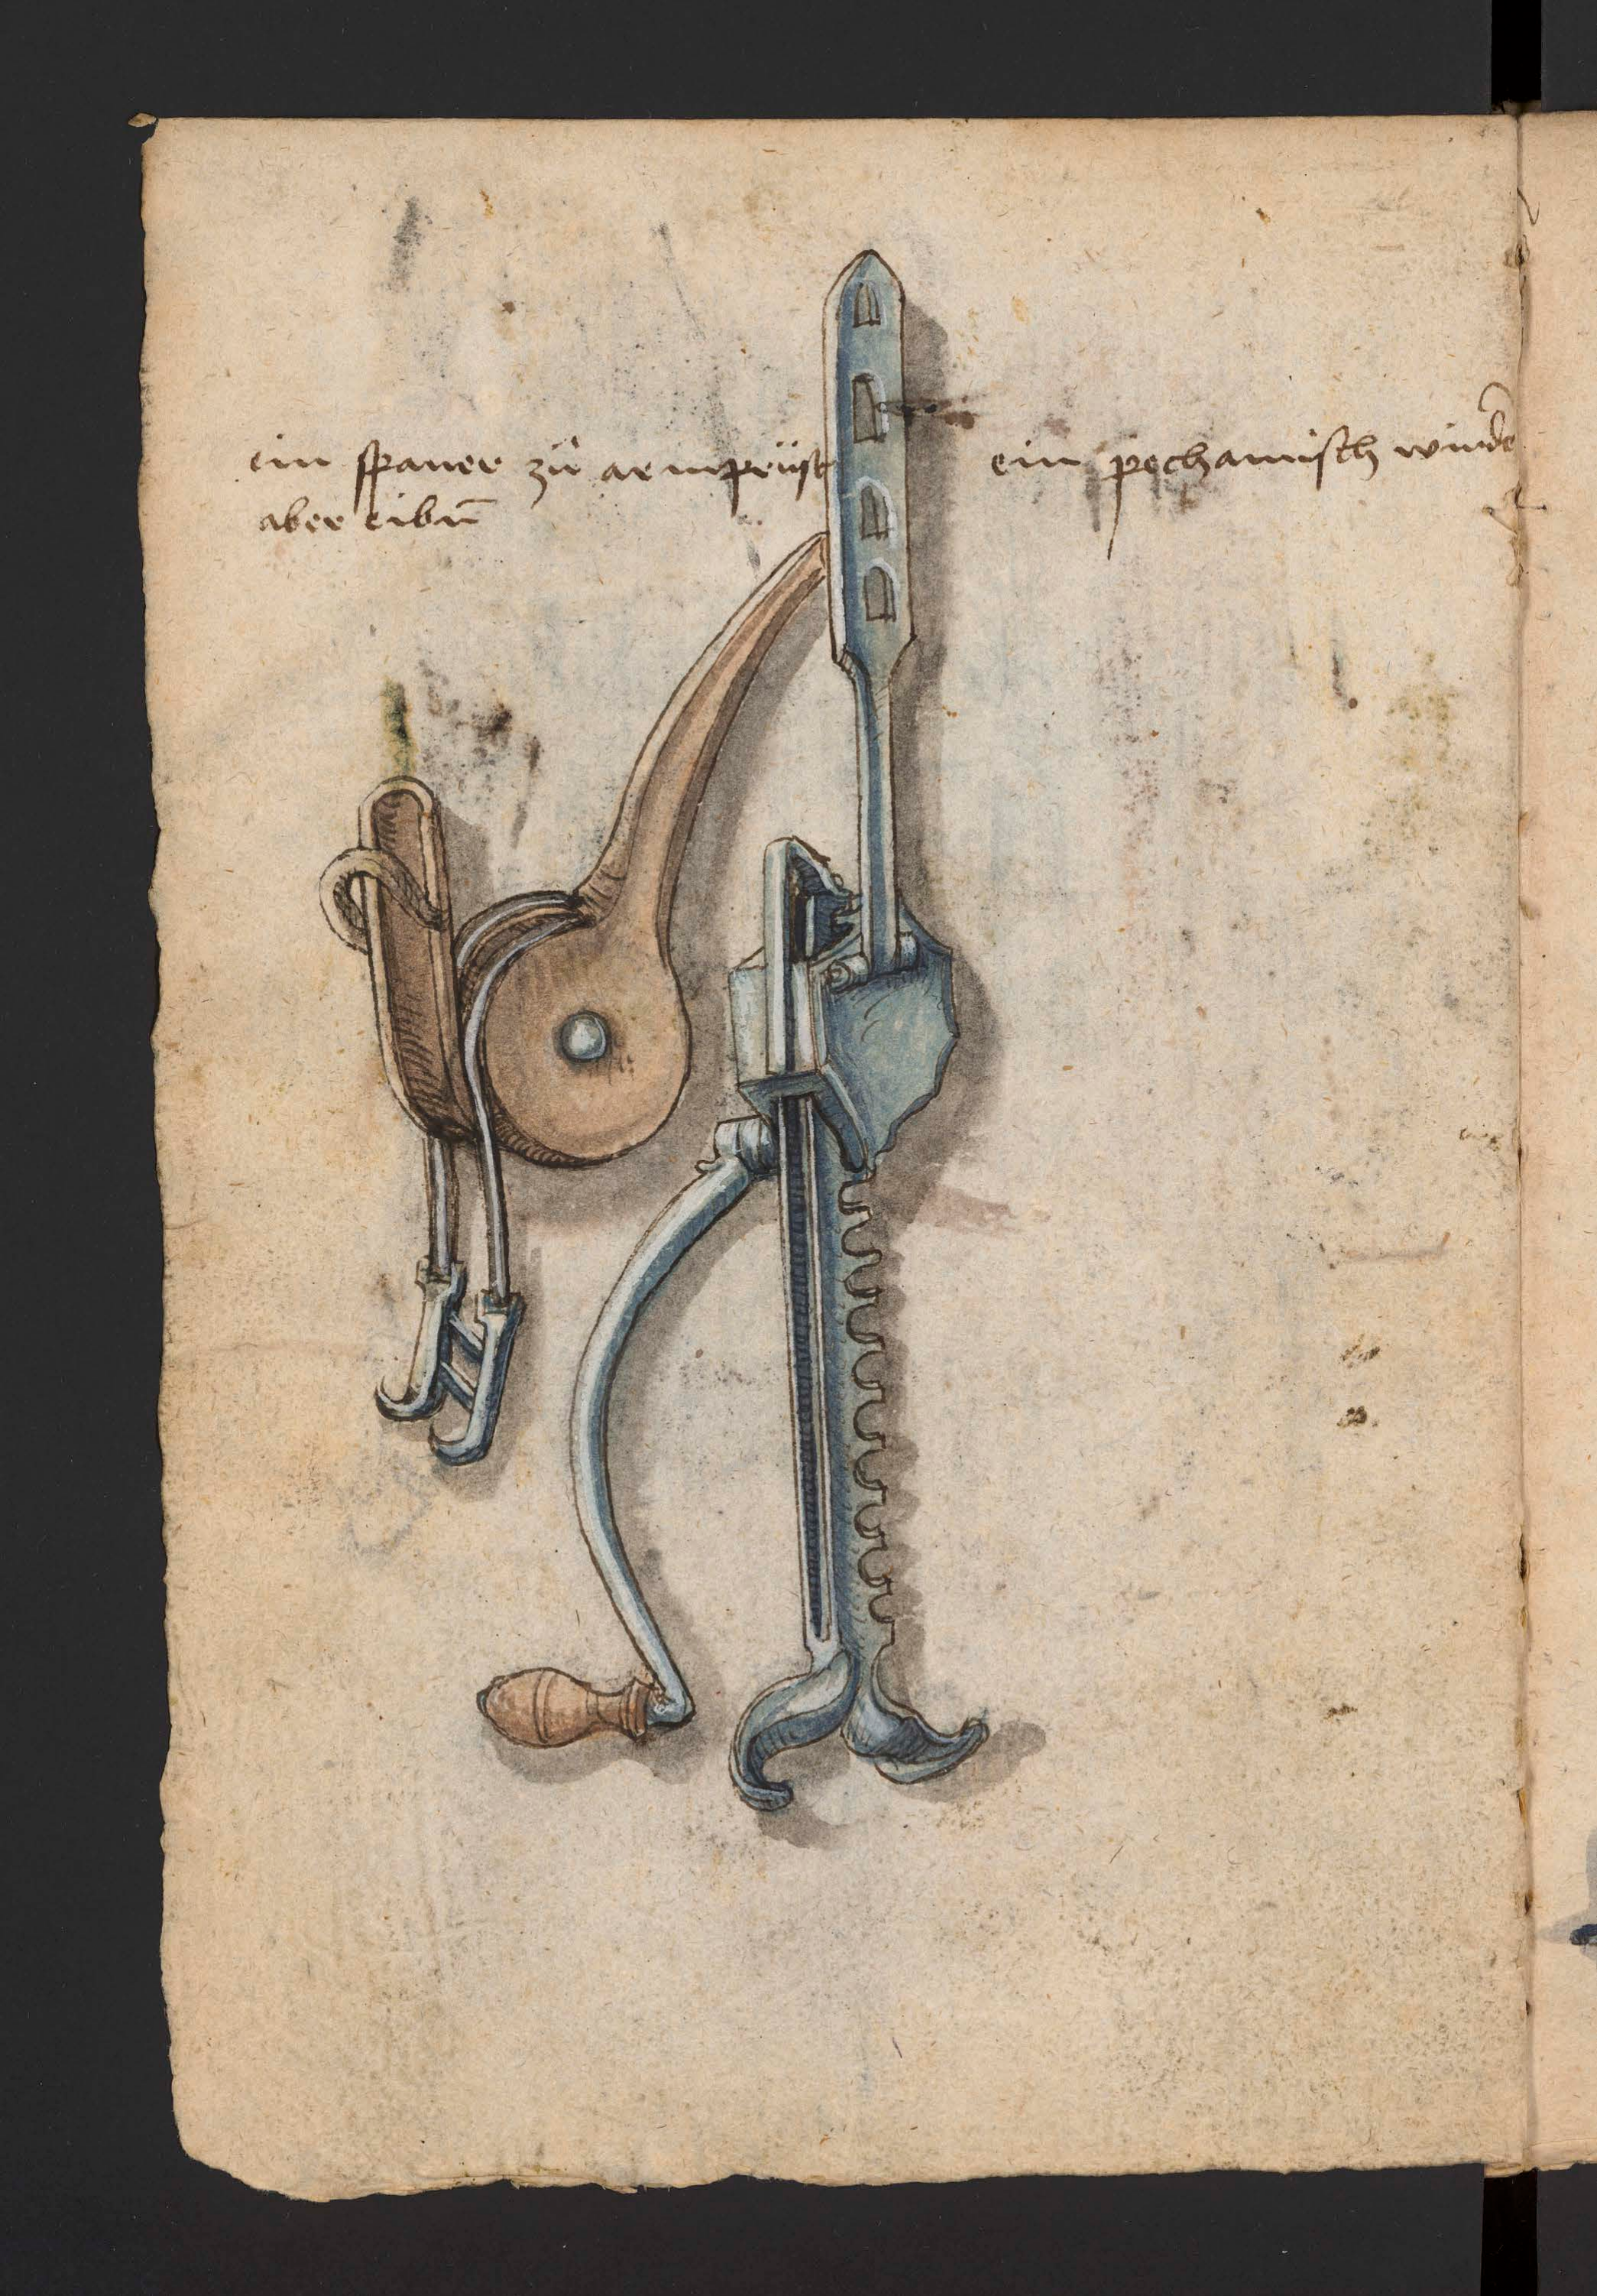 ein spaner zü armprüst
aber eibn̄
ein pechamisch winde